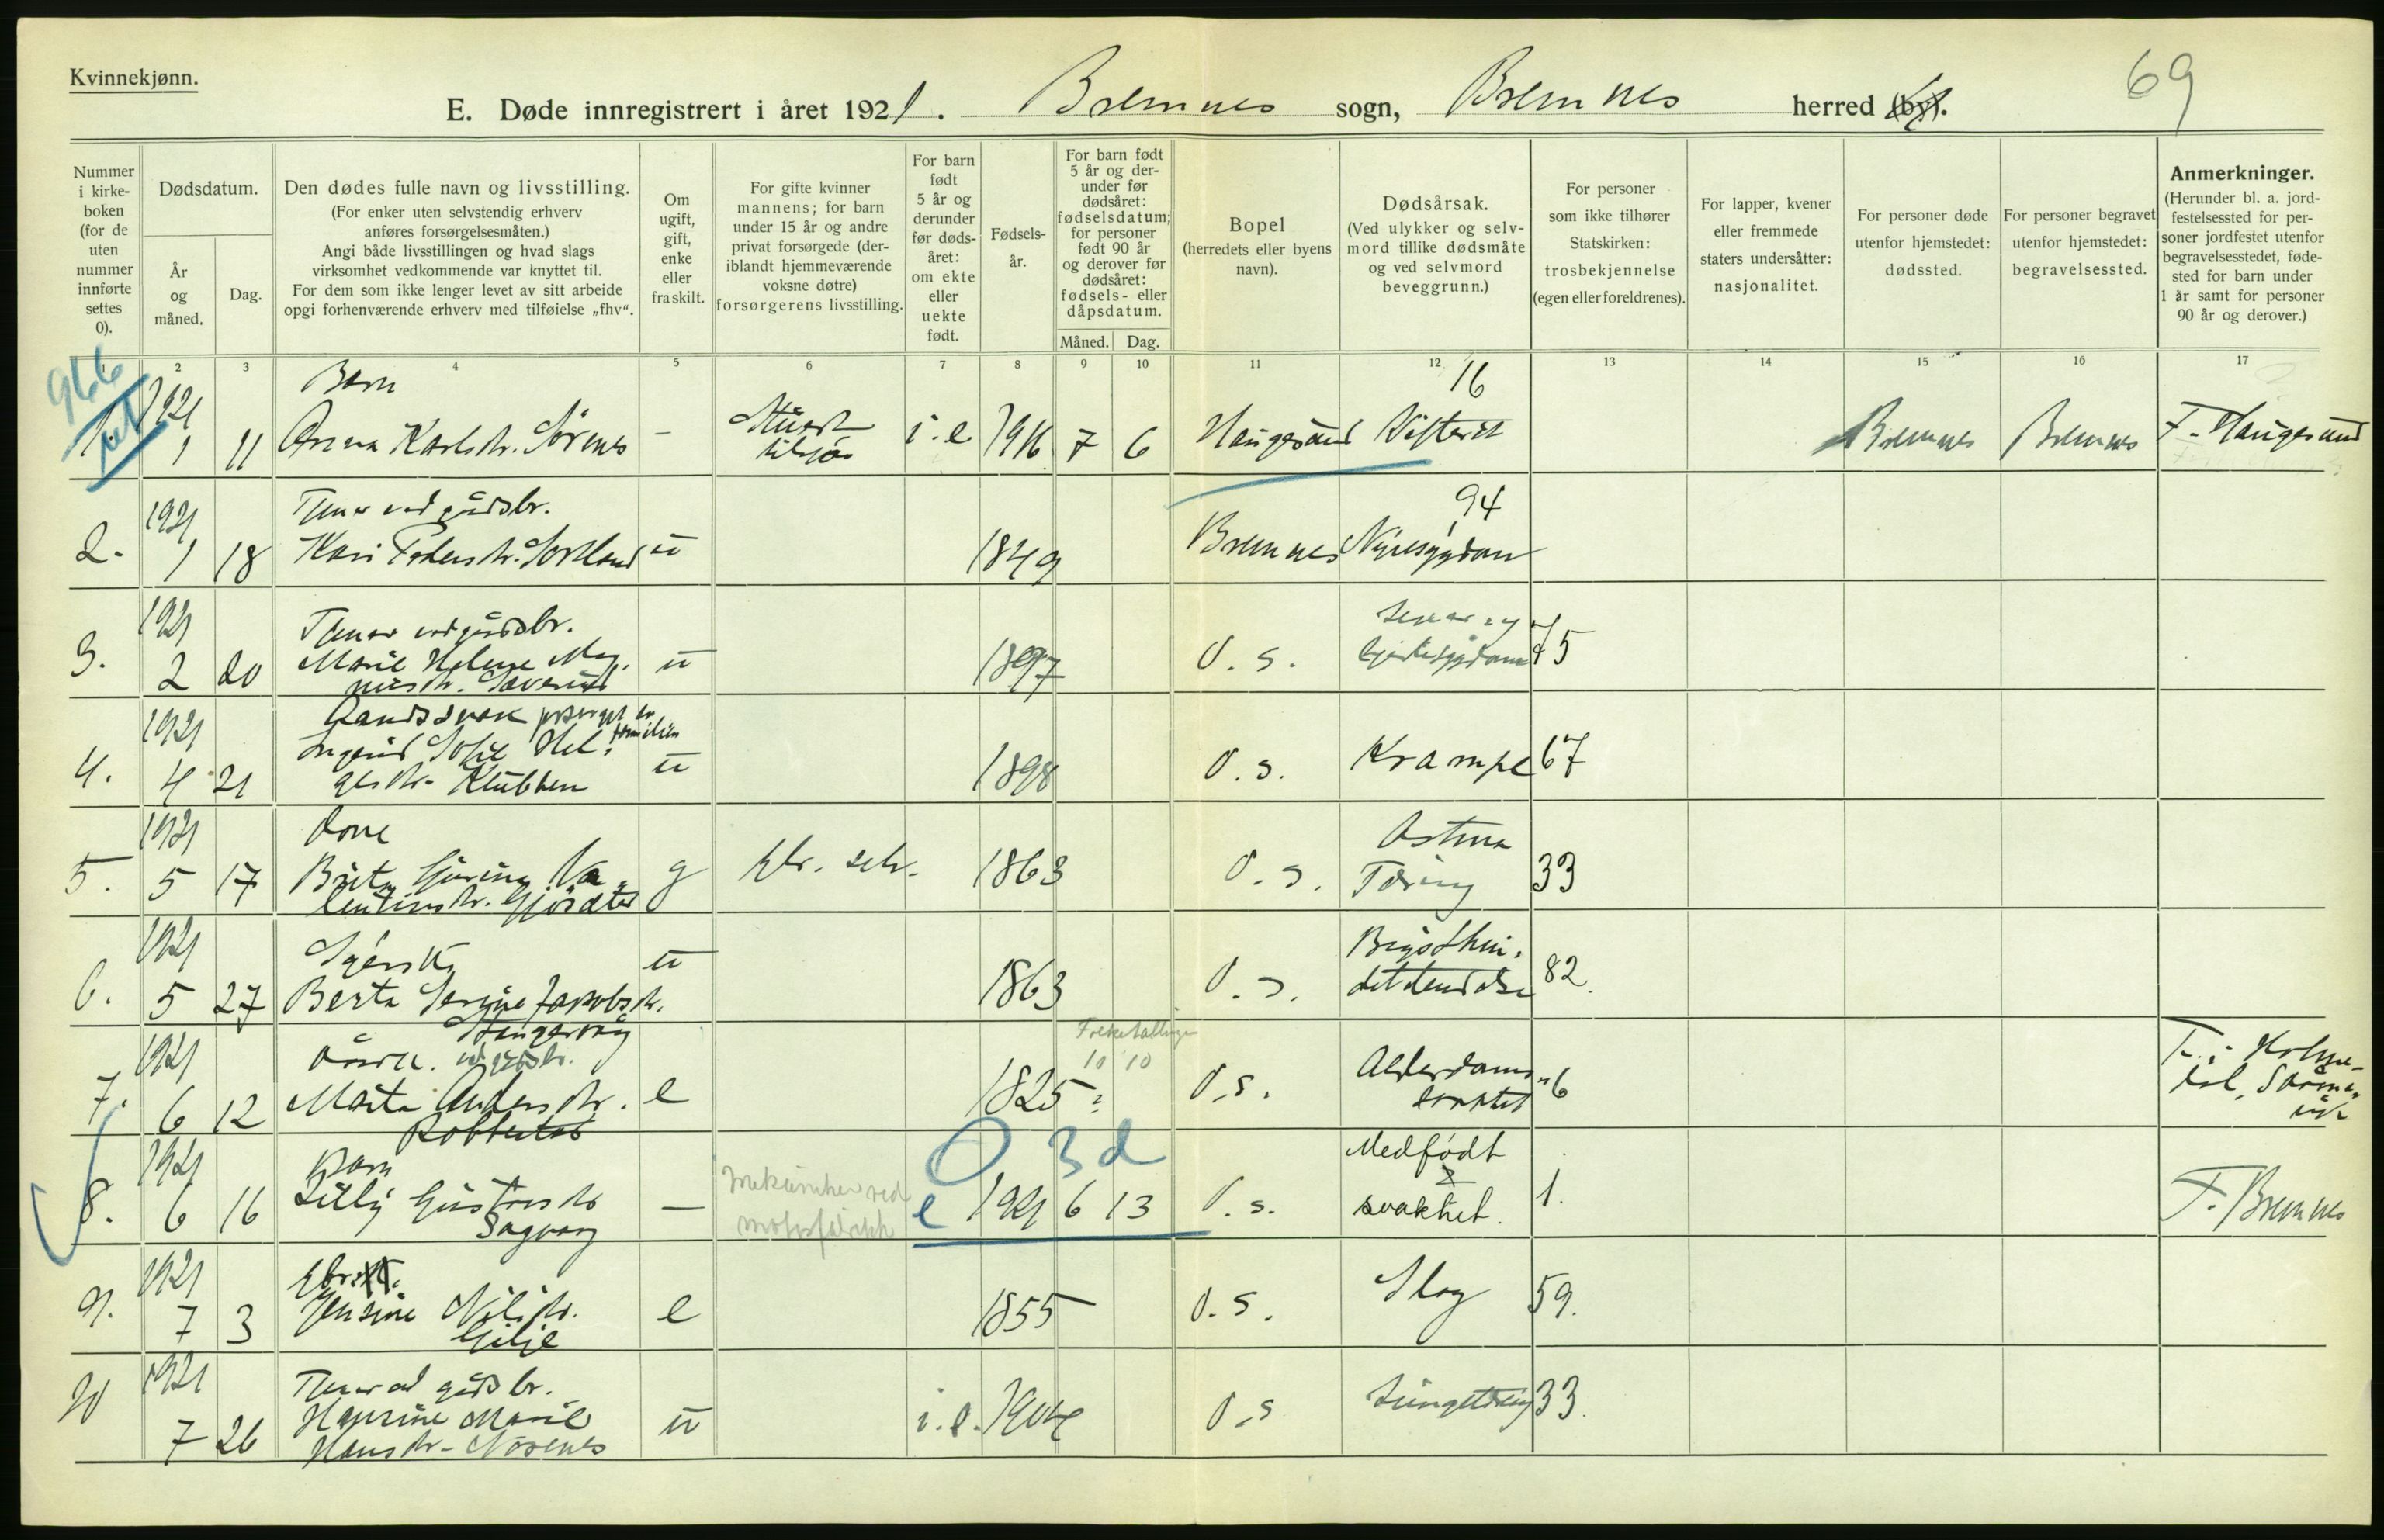 Kvinnekjønn.
69
E. Døde innregistrert i året 1921. Bremnes sogn, Bremnes herred (by).
Nummer i kirkeboken (for de uten nummer innførte settes 0).
Dødsdatum.
År og måned.
Dag.
Den dødes fulle navn og livsstilling.
(For enker uten selvstendig erhverv anføres forsørgelsesmåten.)
Angi både livsstillingen og hvad slags virksomhet vedkommende var knyttet til.
For dem som ikke lenger levet av sitt arbeide opgi forhenværende erhverv med tilføielse „fhv“.
Om ugift, gift, enke eller fraskilt.
For gifte kvinner mannens; for barn under 15 år og andre privat forsørgede (deriblandt hjemmeværende voksne døtre) forsørgerens livsstilling.
For barn født 5 år og derunder før dødsåret: om ekte eller uekte født.
Fødselsår.
For barn født 5 år og derunder før dødsåret: fødselsdatum; for personer født 90 år og derover før dødsåret: fødsels- eller dåpsdatum.
Måned. Dag.
Bopel
(herredets eller byens navn).
Dødsårsak.
(Ved ulykker og selvmord tillike dødsmåte og ved selvmord beveggrunn.)
For personer som ikke tilhører Statskirken: trosbekjennelse (egen eller foreldrenes).
For lapper, kvener eller fremmede staters undersåtter: nasjonalitet.
For personer døde utenfor hjemstedet: dødssted.
For personer begravet utenfor hjemstedet: begravelsessted.
Anmerkninger.
(Herunder bl. a. jordfestelsessted for personer jordfestet utenfor begravelsesstedet, fødested for barn under 1 år samt for personer 90 år og derover.)
1 2 3 4 5 6 7 8 9 10 11 12 13 14 15 16 17
966
1921 Barn 16
1. 1 11 Anna Karlsdr. Sørenes — i. e 1916 7 6 Haugesund Difterit Bremnes Bremnes F. Haugesund
1921 Tjener ved gårdsbr. 94
2. 1 18 Kari Pedersdr. Sortland u 1849 Bremnes Nyresygdom
1921 Tjener ved gårdsbr.
3. 2 20 Marie Helene Mag- u 1897 D. s. hjertesygdom 75
nusdr. Sæverud
1921 Åndssvak forsørget av familien
4. 4 21 Ingerid Sofie Hel- u 1898 D. s. Krampe 67
gesdr. Klubben
1921 Kone Astma
5. 5 17 Brita Gurine Va- g gbr. selv. 1863 D. s. Tæring 33
lentinsdr. Gjøsæter
1921 Syerske u Brysthin-
6. 5 27 Berta Serine Jakobsdr. 1863 D. s. debetendelse 82.
Stangervåg
1921 ved gårdsbr. 10 10 Alderdoms-
7. 6 12 Marta Andersdr. e 1825 D. s. svakhet 6 F. i Holme-
Robberstad
O 3 d
1921 Barn Medfødt
8. 6 16 Lilly Gustavsdr — e 1921 6 13 D. s. svakhet. 1. F. Bremnes
Sagvåg
1921 Gbr.
9. 7 3 Jensine Nilsdr. e 1855 D. s. Slag 59.
Gilje
1921 Tjener ved gårdsbr.
10 7 26 Hansine Marie u i. e. 1904 D. s Lungetæring 33.
Hansdr. Nøsenes